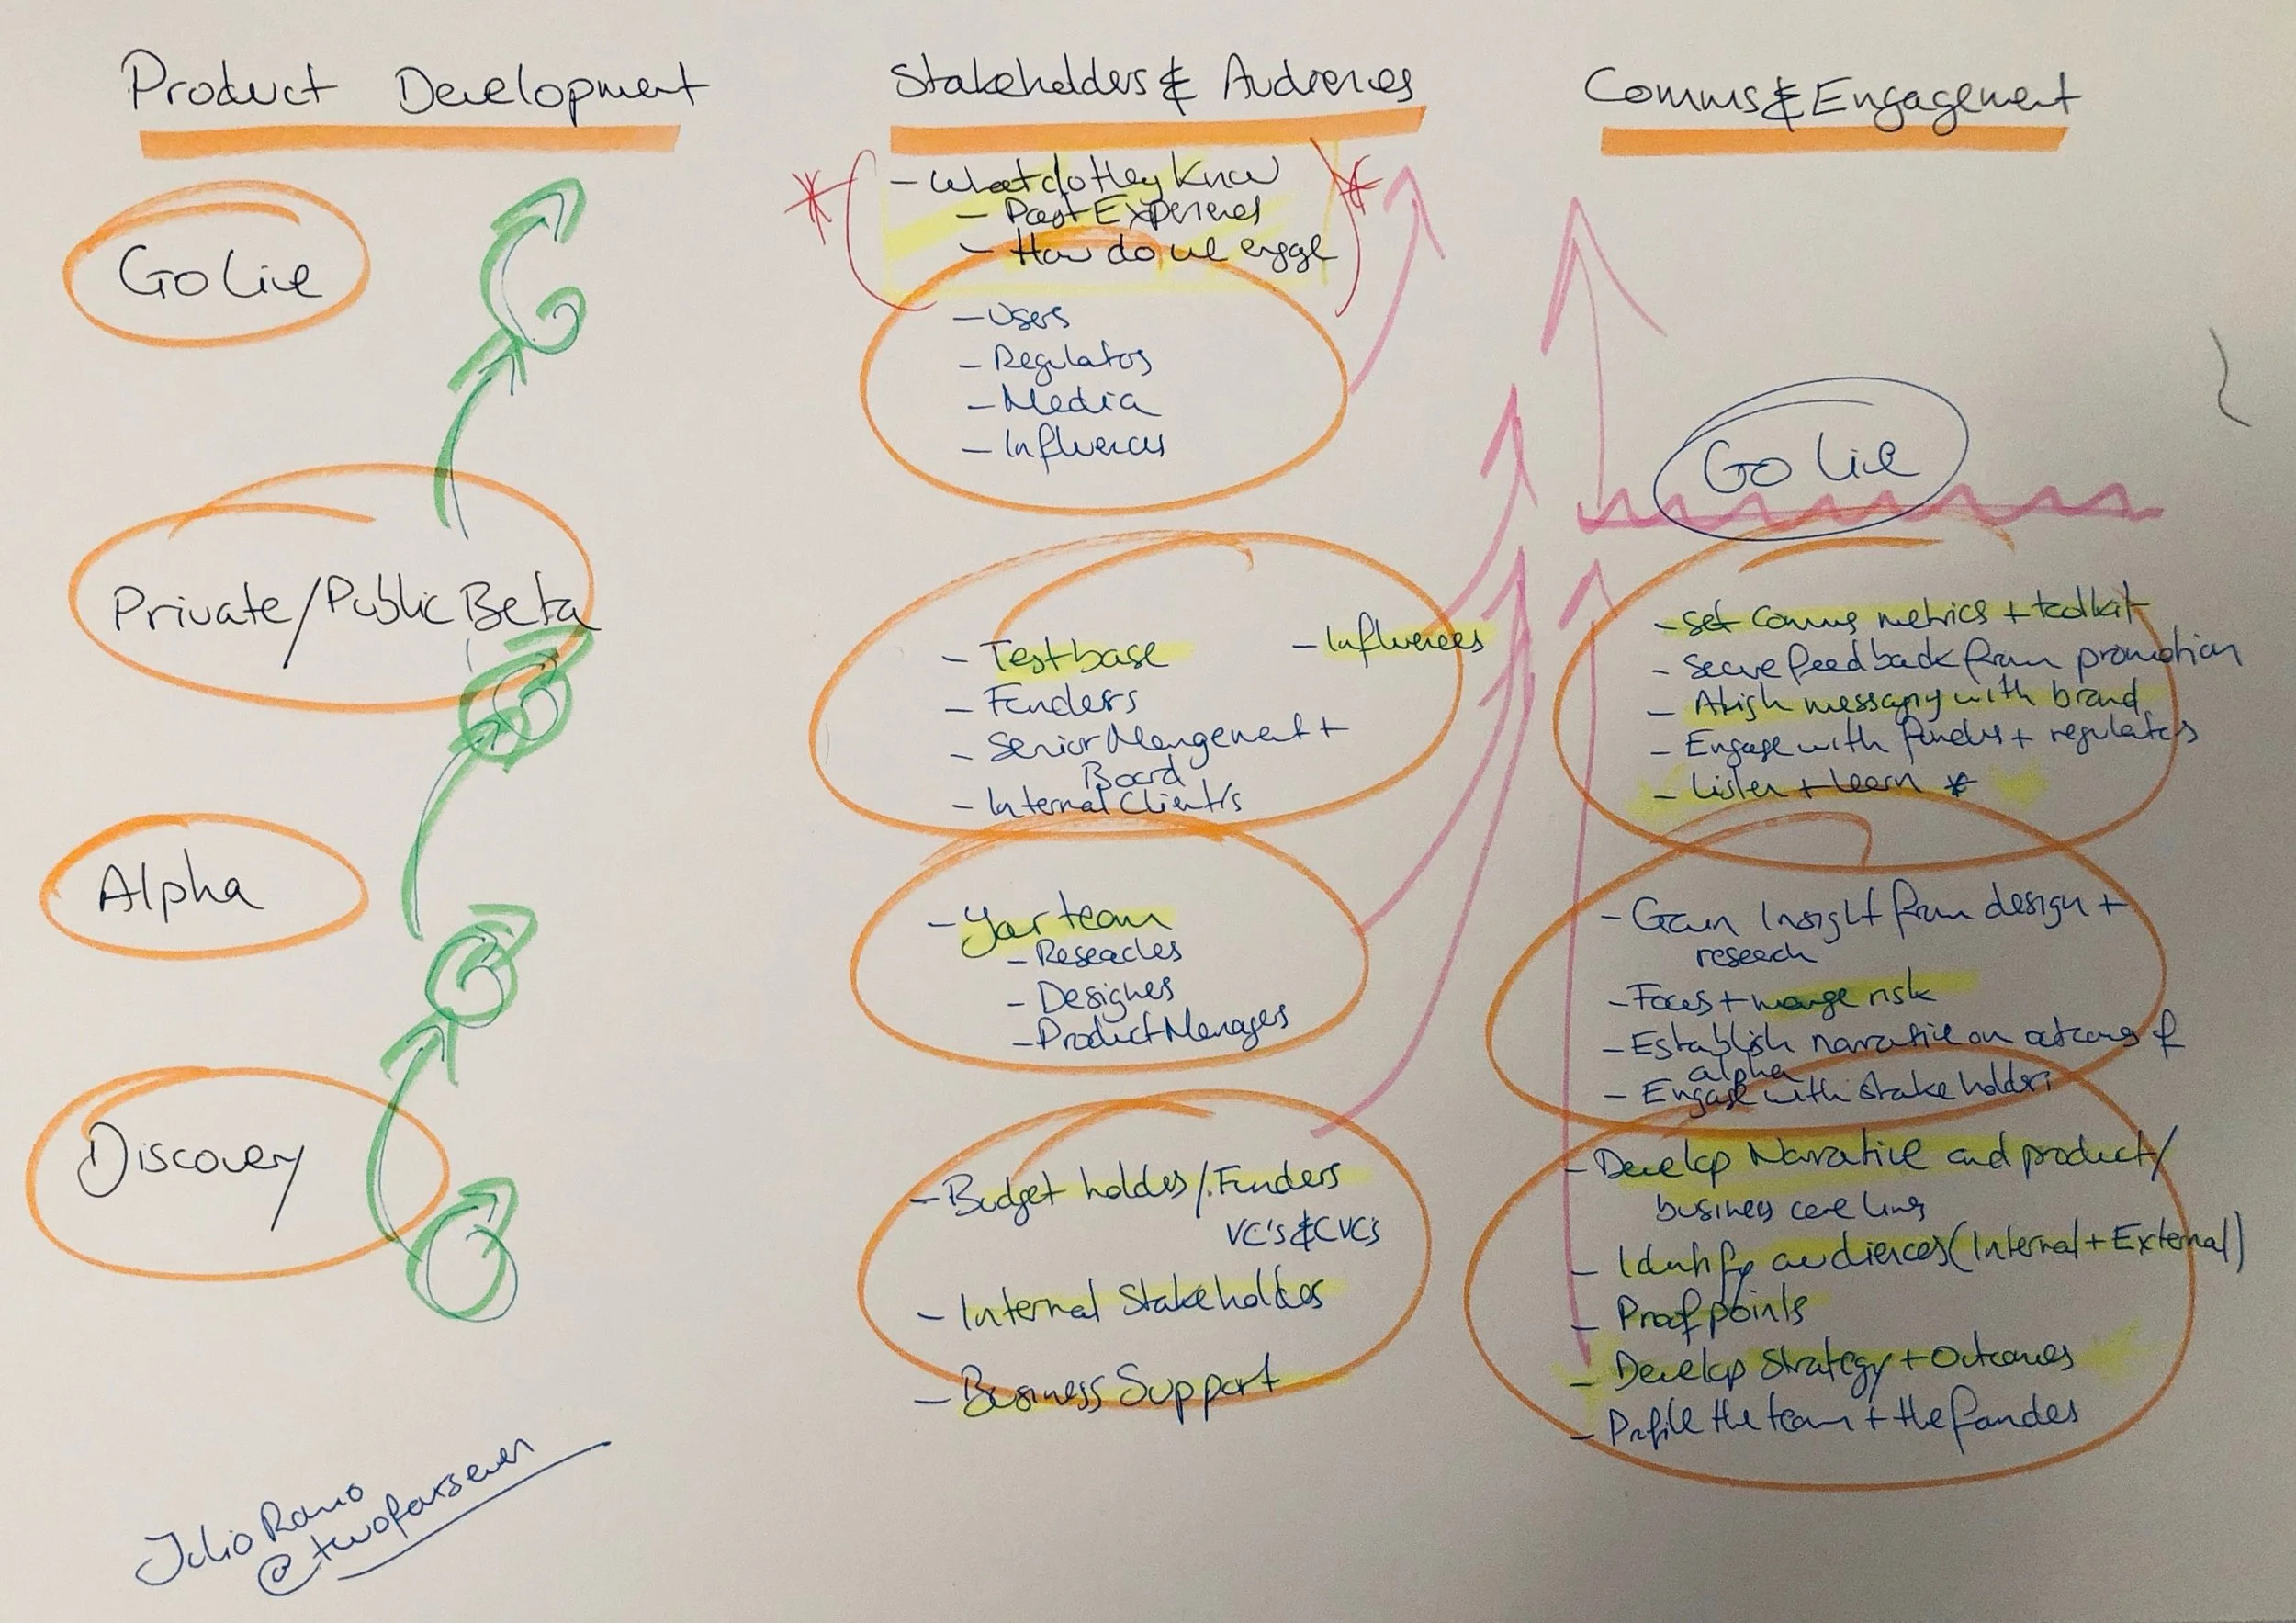 Product Development
Go Live
Private/Public Beta
Alpha
Discovery
Julio Romo
@twofourseven
Stakeholders & Audiences
- What do they know
- Past Experiences
- How do we engage
- Users
- Regulators
- Media
- Influencers
- Test base
- Influencers
- Funders
- Senior Mangement +
Board
- Internal Client/s
- Your team
- Researchers
- Designers
- Product Managers
- Budget holders/Funders
VC's & CVC's
- Internal Stakeholders
- Business Support
Comms & Engagement
Go Live
- Set Comms metrics + toolkit
- Secure feedback from promotion
- Align messaging with brand
- Engage with funders + regulators
- Listen + learn *
- Gain Insight from design +
research
- Focus + manage risk
- Establish narrative on outcomes of
alpha
- Engage with stakeholders
- Develop Narrative and product/
business case lines
- Identify audiences (Internal + External)
- Proof points
- Develop Strategy + Outcomes
- Profile the team + the founders